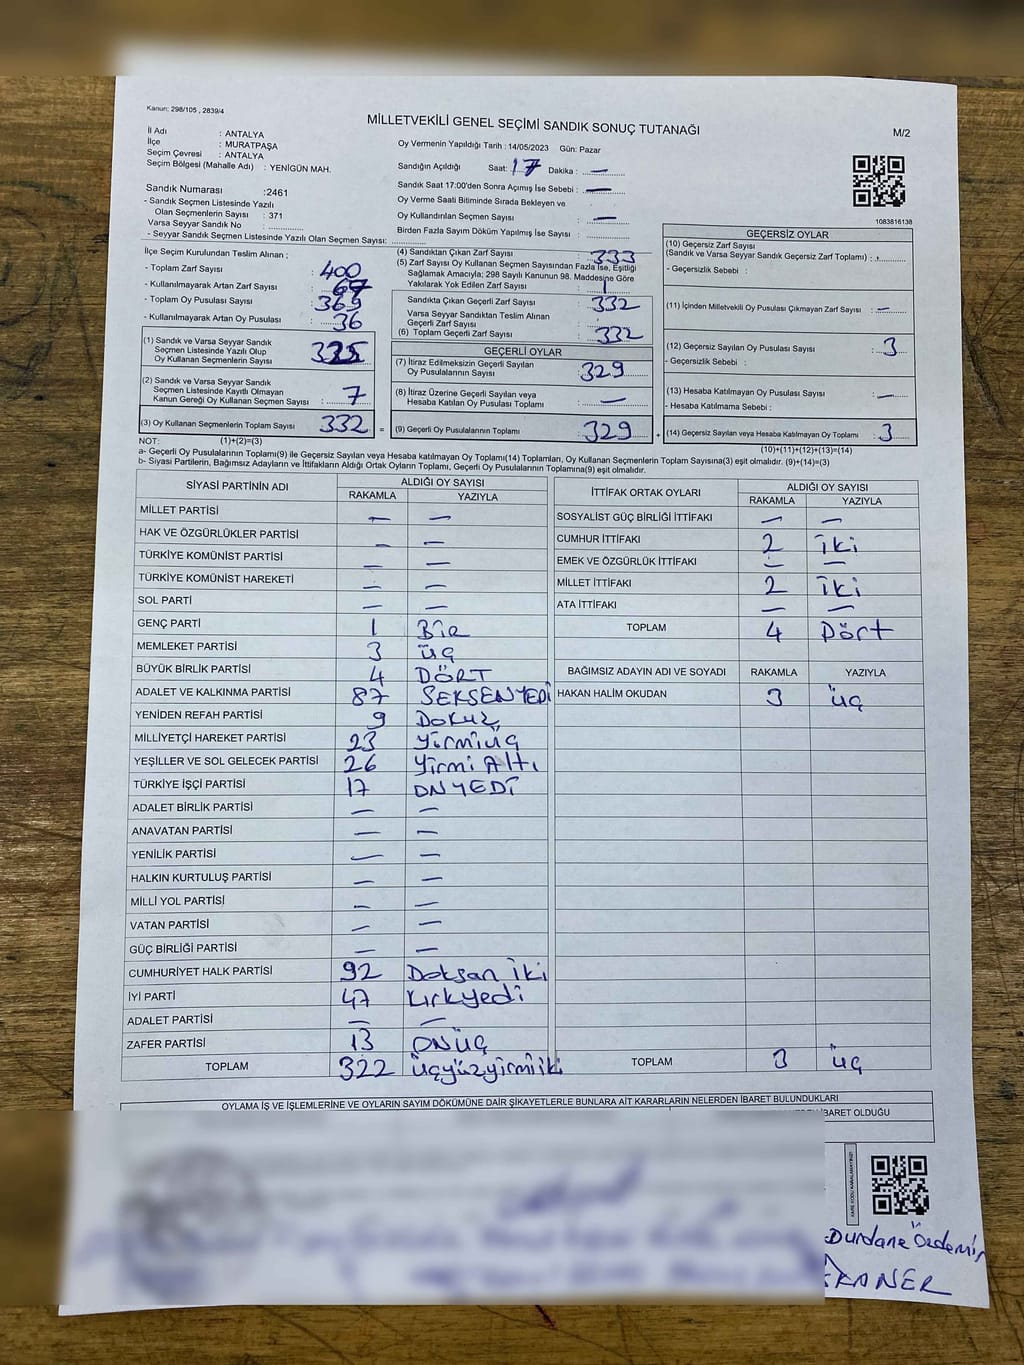 Kanun: 298/105 , 2839/4
MİLLETVEKİLİ GENEL SEÇİMİ SANDIK SONUÇ TUTANAĞI
M/2
İl Adı : ANTALYA
İlçe : MURATPAŞA
Seçim Çevresi : ANTALYA
Seçim Bölgesi (Mahalle Adı) : YENİGÜN MAH.
Oy Vermenin Yapıldığı Tarih : 14/05/2023 Gün: Pazar
Sandığın Açıldığı Saat: 17 Dakika : —
Sandık Saat 17:00'den Sonra Açımış İse Sebebi : —
Oy Verme Saati Bitiminde Sırada Bekleyen ve
Oy Kullandırılan Seçmen Sayısı : —
Birden Fazla Sayım Döküm Yapılmış İse Sayısı :
1083816138
Sandık Numarası :2461
- Sandık Seçmen Listesinde Yazılı
Olan Seçmenlerin Sayısı : 371
Varsa Seyyar Sandık No :
- Seyyar Sandık Seçmen Listesinde Yazılı Olan Seçmen Sayısı:
İlçe Seçim Kurulundan Teslim Alınan ;
- Toplam Zarf Sayısı : 400
- Kullanılmayarak Artan Zarf Sayısı : 67
- Toplam Oy Pusulası Sayısı : 369
- Kullanılmayarak Artan Oy Pusulası : 36
(1) Sandık ve Varsa Seyyar Sandık
Seçmen Listesinde Yazılı Olup
Oy Kullanan Seçmenlerin Sayısı : 325
(2) Sandık ve Varsa Seyyar Sandık
Seçmen Listesinde Kayıtlı Olmayan
Kanun Gereği Oy Kullanan Seçmen Sayısı : 7
(3) Oy Kullanan Seçmenlerin Toplam Sayısı : 332 =
(4) Sandıktan Çıkan Zarf Sayısı : 333
(5) Zarf Sayısı Oy Kullanan Seçmen Sayısından Fazla İse, Eşitliği
Sağlamak Amacıyla; 298 Sayılı Kanunun 98. Maddesine Göre
Yakılarak Yok Edilen Zarf Sayısı : 1
Sandıkta Çıkan Geçerli Zarf Sayısı : 332
Varsa Seyyar Sandıktan Teslim Alınan
Geçerli Zarf Sayısı :
(6) Toplam Geçerli Zarf Sayısı : 332
GEÇERLİ OYLAR
(7) İtiraz Edilmeksizin Geçerli Sayılan
Oy Pusulalarının Sayısı : 329
(8) İtiraz Üzerine Geçerli Sayılan veya
Hesaba Katılan Oy Pusulası Toplamı : —
(9) Geçerli Oy Pusulalarının Toplamı : 329 +
GEÇERSİZ OYLAR
(10) Geçersiz Zarf Sayısı
(Sandık ve Varsa Seyyar Sandık Geçersiz Zarf Toplamı) :
- Geçersizlik Sebebi :
(11) İçinden Milletvekili Oy Pusulası Çıkmayan Zarf Sayısı : —
(12) Geçersiz Sayılan Oy Pusulası Sayısı : 3
- Geçersizlik Sebebi :
(13) Hesaba Katılmayan Oy Pusulası Sayısı : —
- Hesaba Katılmama Sebebi :
(14) Geçersiz Sayılan veya Hesaba Katılmayan Oy Toplamı : 3
NOT: (1)+(2)=(3)
(10)+(11)+(12)+(13)=(14)
a- Geçerli Oy Pusulalarının Toplamı(9) ile Geçersiz Sayılan veya Hesaba Katılmayan Oy Toplamı(14) Toplamları, Oy Kullanan Seçmenlerin Toplam Sayısına(3) eşit olmalıdır. (9)+(14)=(3)
b- Siyasi Partilerin, Bağımsız Adayların ve İttifakların Aldığı Ortak Oyların Toplamı, Geçerli Oy Pusulalarının Toplamına(9) eşit olmalıdır.
SİYASİ PARTİNİN ADI ALDIĞI OY SAYISI
RAKAMLA YAZIYLA
MİLLET PARTİSİ — —
HAK VE ÖZGÜRLÜKLER PARTİSİ — —
TÜRKİYE KOMÜNİST PARTİSİ — —
TÜRKİYE KOMÜNİST HAREKETİ — —
SOL PARTİ — —
GENÇ PARTİ 1 Bir
MEMLEKET PARTİSİ 3 üç
BÜYÜK BİRLİK PARTİSİ 4 DÖRT
ADALET VE KALKINMA PARTİSİ 87 SEKSENYEDİ
YENİDEN REFAH PARTİSİ 9 Dokuz
MİLLİYETÇİ HAREKET PARTİSİ 23 Yirmiüç
YEŞİLLER VE SOL GELECEK PARTİSİ 26 Yirmi Altı
TÜRKİYE İŞÇİ PARTİSİ 17 ONYEDİ
ADALET BİRLİK PARTİSİ — —
ANAVATAN PARTİSİ — —
YENİLİK PARTİSİ — —
HALKIN KURTULUŞ PARTİSİ — —
MİLLİ YOL PARTİSİ — —
VATAN PARTİSİ — —
GÜÇ BİRLİĞİ PARTİSİ — —
CUMHURİYET HALK PARTİSİ 92 Doksan iki
İYİ PARTİ 47 Kırkyedi
ADALET PARTİSİ — —
ZAFER PARTİSİ 13 ONÜÇ
TOPLAM 322 üçyüzyirmiiki
İTTİFAK ORTAK OYLARI ALDIĞI OY SAYISI
RAKAMLA YAZIYLA
SOSYALİST GÜÇ BİRLİĞİ İTTİFAKI — —
CUMHUR İTTİFAKI 2 iki
EMEK VE ÖZGÜRLÜK İTTİFAKI — —
MİLLET İTTİFAKI 2 iki
ATA İTTİFAKI — —
TOPLAM 4 Dört
BAĞIMSIZ ADAYIN ADI VE SOYADI RAKAMLA YAZIYLA
HAKAN HALİM OKUDAN 3 üç
TOPLAM 3 üç
OYLAMA İŞ VE İŞLEMLERİNE VE OYLARIN SAYIM DÖKÜMÜNE DAİR ŞİKAYETLERLE BUNLARA AİT KARARLARIN NELERDEN İBARET BULUNDUKLARI
İBARET OLDUĞU
KARE KODU KARALAMAYINIZ!
Durdane Özdemir
KANER